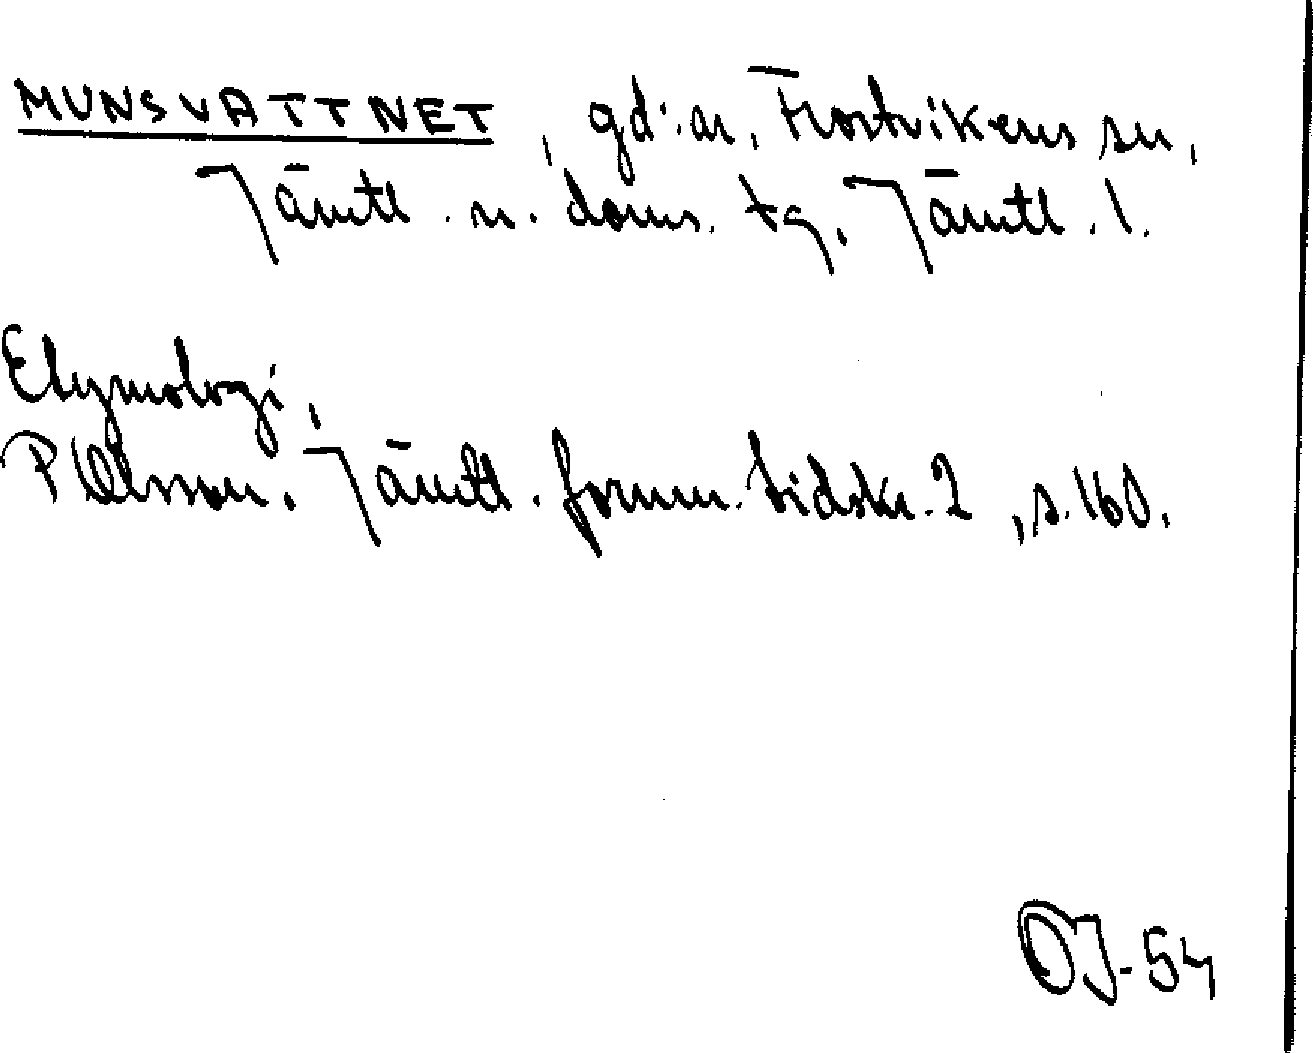 MUNSVATTNET, gd:ar, Frostvikens sn,
Jämtl. n. doms. tg. Jämtl. l.
Etymologi,
P Olsson. Jämtl. fornm. tidskr. 2, s. 160.
OJ-54